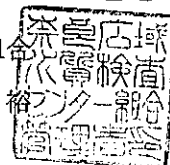 合
裕
奈良広域
水質検査
センター組合
管理者印